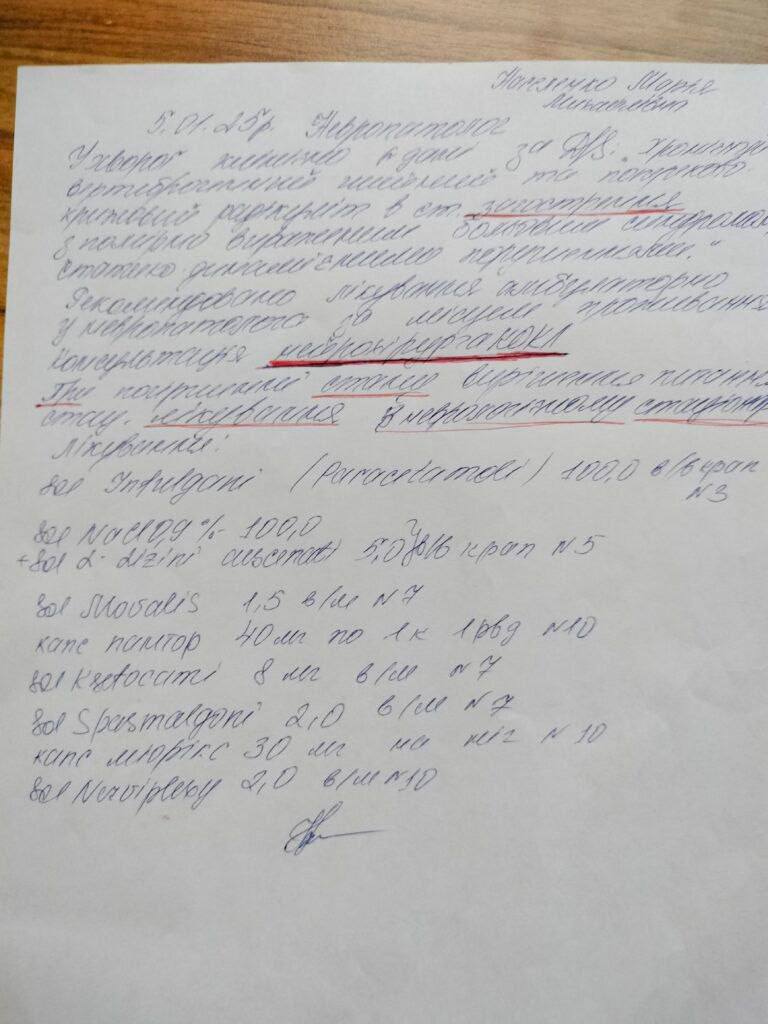 5.01.25р. Невропатолог
У хворої клінічно дані за Ds:
вертеброгенний шийний та попереково
крижовий радикуліт в ст. загострення
з помірно вираженим больовим синдромом,
статико-динамічними
Рекомендовано лікування амбулаторно
у невропатолога за місцем проживання
Консультація нейрохірурга КОКЛ
При погіршенні стану вирішення питання
стац. лікування в неврологічному
Лікування:
Sol Infulgani (Paracetamoli) 100,0 в/в крап
N3
Sol NaCl 0,9% 100,0
+ Sol L-lizini aescinati 5,0 в/в крап N5
Sol Movalis 1,5 в/м N7
капс памтор 40 мг по 1к 1рвд N10
8 мг в/м N7
Sol Spasmalgoni 2,0 в/м N7
капс міорікс 30 мг на ніч N10
Sol Neuriplexy 2,0 в/м N10